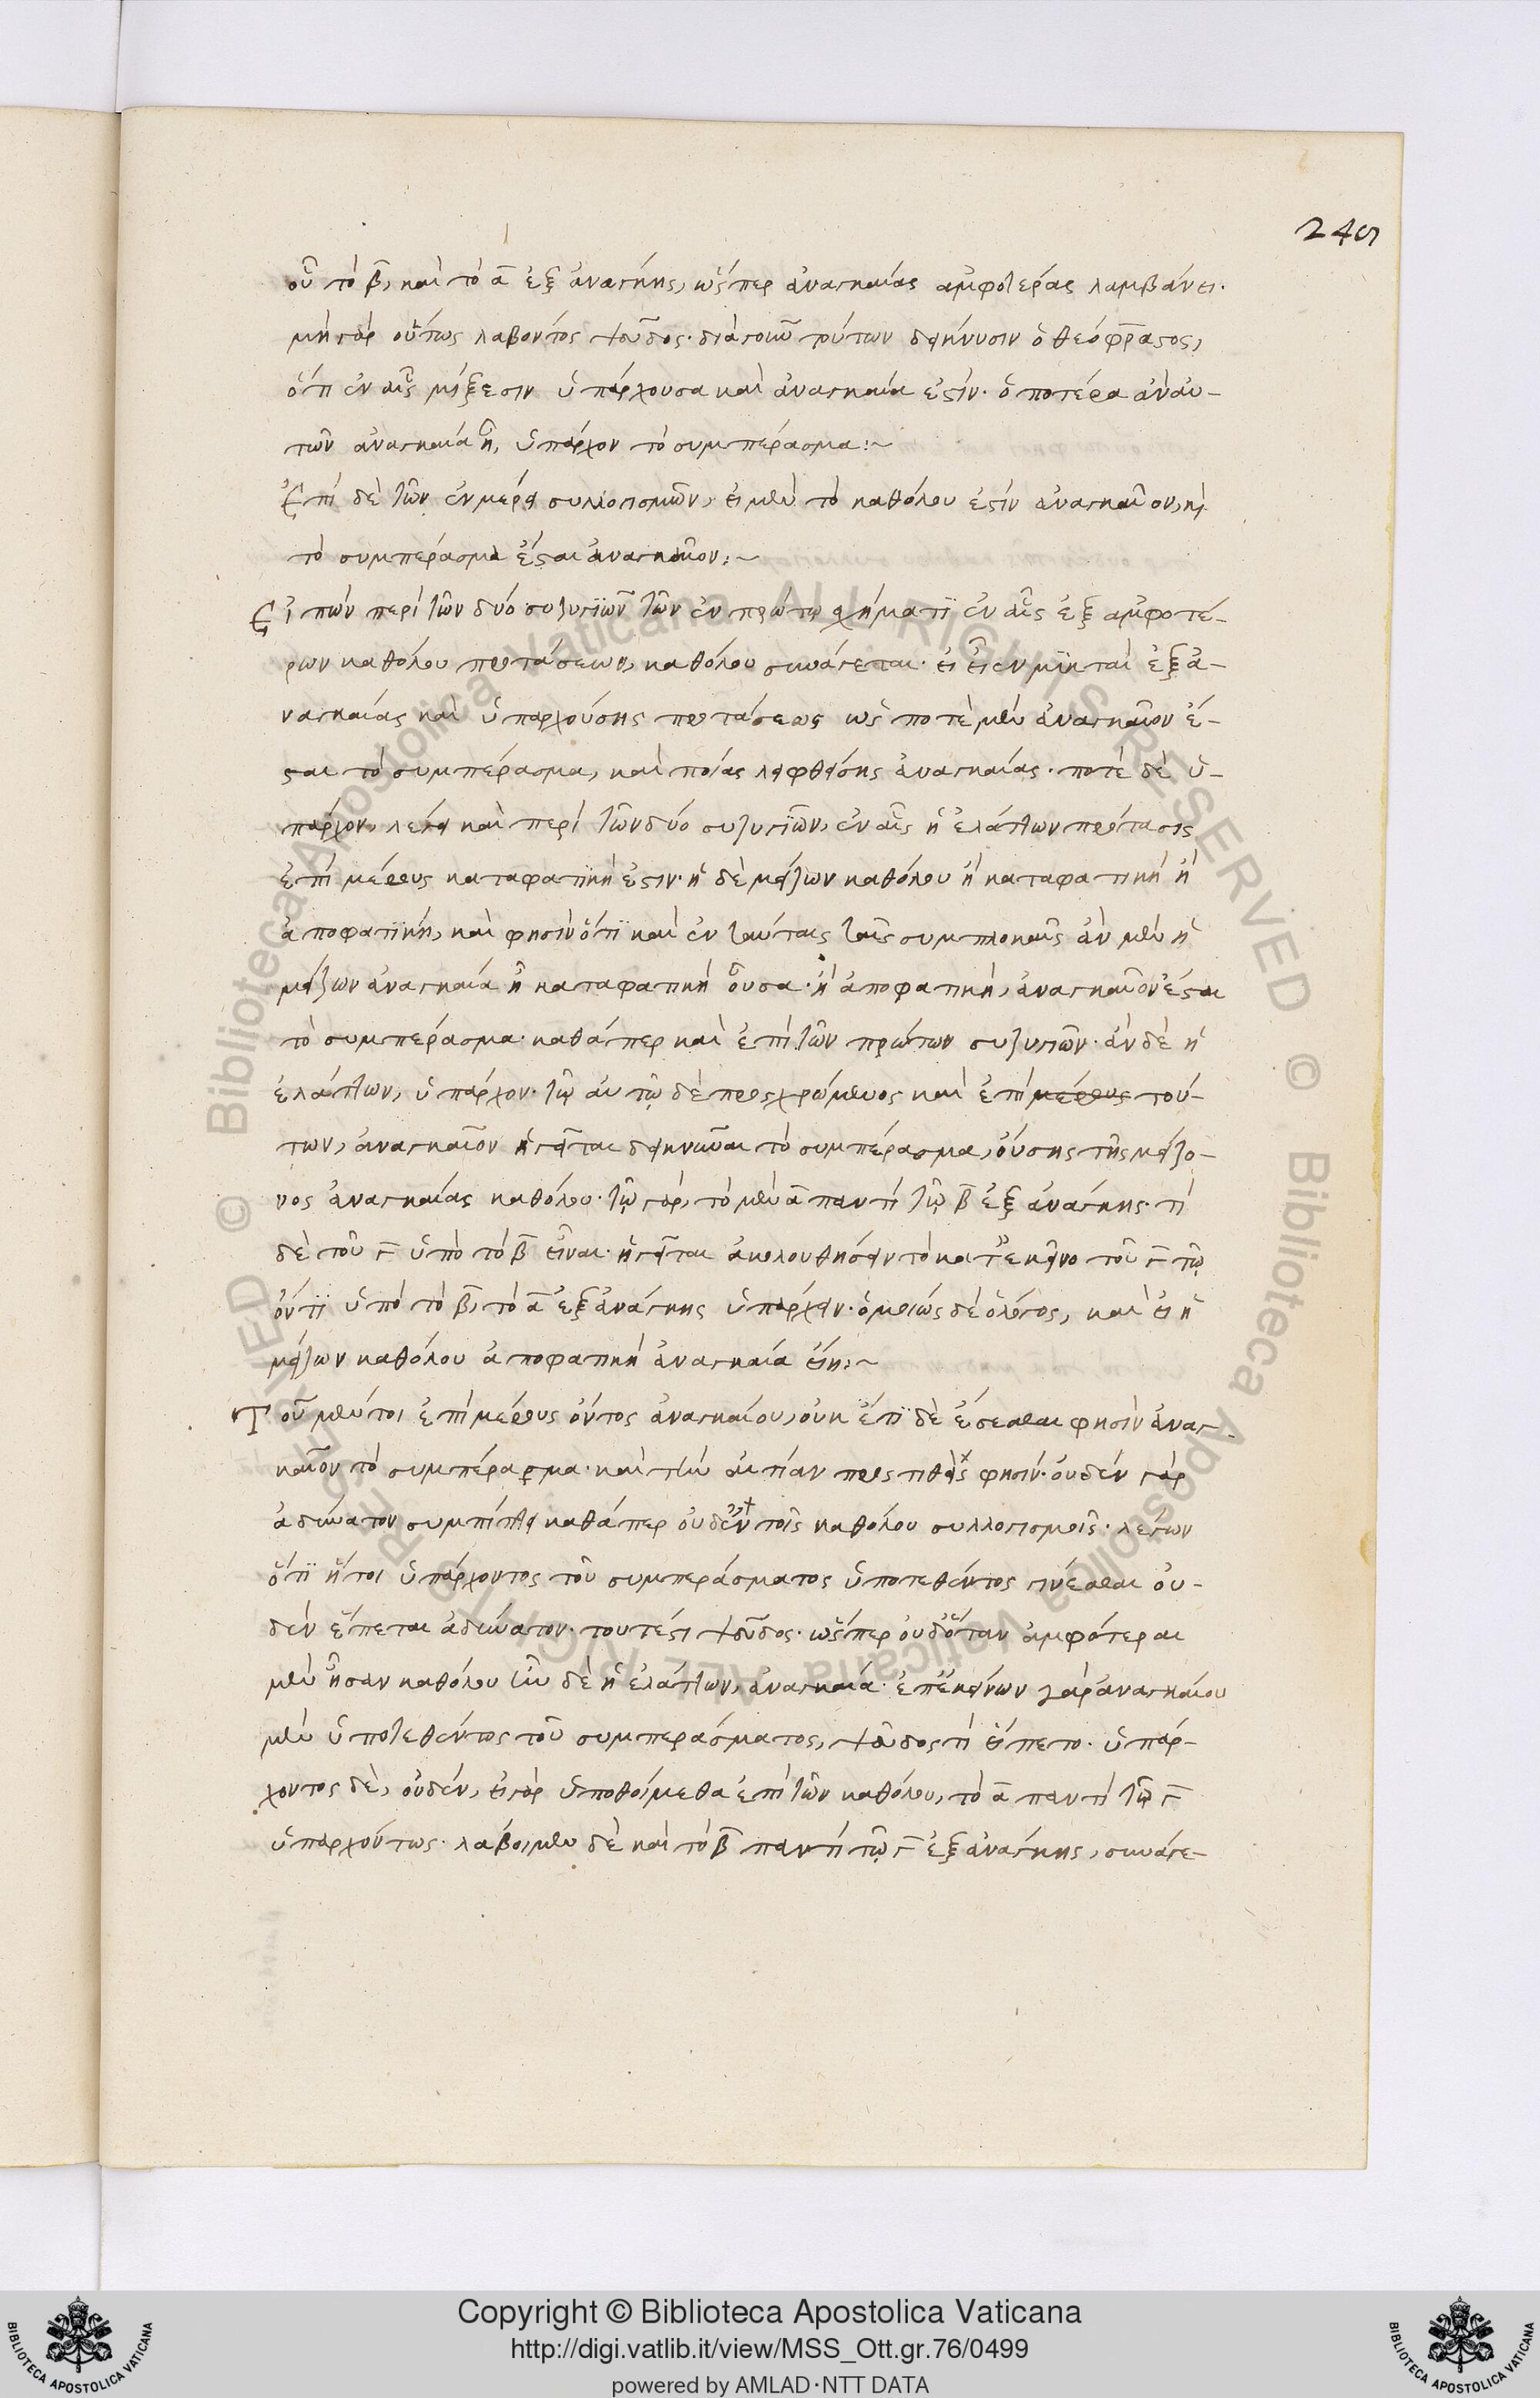 249
οὗ τὸ β̅, καὶ τὸ α̅ ἐξ ἀνάγκης, ὥσπερ ἀναγκαίας ἀμφοτέρας λαμβάνει.
μὴ γὰρ οὕτως λαβόντος ψεῦδος· διὰ γοῦν τούτων δείκνυσιν ὁ θεόφραστος,
ὅτι ἐν αἷς μίξεσιν ὑπάρχουσα καὶ ἀναγκαία ἐστίν· ὁποτέρα ἂν αὐ-
τῶν ἀναγκαία ᾖ, ὑπάρχον τὸ συμπέρασμα:~
Ἐπὶ δὲ τῶν ἐν μέρει συλλογισμῶν, εἰ μὲν τὸ καθόλου ἐστὶν ἀναγκαῖον, καὶ
τὸ συμπέρασμα ἔσται ἀναγκαῖον:~
Εἰπὼν περὶ τῶν δύο συζυγιῶν τῶν ἐν πρώτῳ σχήματι ἐν αἷς ἐξ ἀμφοτέ-
ρων καθόλου προτάσεων, καθόλου συνάγεται· εἰ εἶεν μικταὶ ἐξ ἀ-
ναγκαίας καὶ ὑπαρχούσης προτάσεως ὡς ποτὲ μὲν ἀναγκαῖον ἔ-
σται τὸ συμπέρασμα, καὶ ποίας ληφθείσης ἀναγκαίας· ποτὲ δὲ ὑ-
πάρχον, λέγει καὶ περὶ τῶν δύο συζυγιῶν, ἐν αἷς ἡ ἐλάττων πρότασις
ἐπὶ μέρους καταφατική ἐστιν· ἡ δὲ μείζων καθόλου ἢ καταφατικὴ ἢ
ἀποφατική, καὶ φησὶν ὅτι καὶ ἐν ταύταις ταῖς συμπλοκαῖς ἂν μὲν ἡ
μείζων ἀναγκαία ᾖ καταφατικὴ οὖσα· ἢ ἀποφατική, ἀναγκαῖον ἔσται
τὸ συμπέρασμα· καθάπερ καὶ ἐπὶ τῶν πρώτων συζυγιῶν· ἂν δὲ ἡ
ἐλάττων, ὑπάρχον· τῷ αὐτῷ δὲ προσχρώμενος καὶ ἐπὶ μέρους τού-
των, ἀναγκαῖον ἡγεῖται δεικνῦναι τὸ συμπέρασμα, οὔσης τῆς μείζο-
νος ἀναγκαίας καθόλου· τῷ γὰρ, τὸ μὲν α̅ παντὶ τῷ β̅ ἐξ ἀνάγκης· τὶ
δὲ τοῦ γ̅ ὑπὸ τὸ β̅ εἶναι· ἡγεῖται ἀκολουθήσειν τὸ κατ' ἐκεῖνο τοῦ γ̅ τῷ
ὄντι ὑπὸ τὸ β̅, τὸ α̅ ἐξ ἀνάγκης ὑπάρχειν· ὁμοίως δὲ ὁ λόγος, καὶ εἰ ἡ
μείζων καθόλου ἀποφατικὴ ἀναγκαία εἴη:~
Τοῦ μέντοι ἐπὶ μέρους ὄντος ἀναγκαίου, οὐκ ἔτι δὲ ἔσεσθαι φησὶν ἀναγ-
καῖον τὸ συμπέρασμα· καὶ τὴν αἰτίαν προστιθεὶς φησίν· οὐδὲν γὰρ
ἀδύνατον συμπίπτει καθάπερ οὐδ' ἐν τοῖς καθόλου συλλογισμοῖς· λέγων
ὅτι ἤτοι ὑπάρχοντος τοῦ συμπεράσματος ὑποτεθέντος γινέσθαι οὐ-
δὲν ἕπεται ἀδύνατον· τουτέστι ψεῦδος· ὥσπερ οὐδ' ὅταν ἀμφότεραι
μὲν ἦσαν καθόλου ἦν δὲ ἡ ἐλάττων, ἀναγκαία· ἐπ' ἐκείνων γὰρ ἀναγκαίου
μὲν ὑποτεθέντος τοῦ συμπεράσματος, ψεῦδός τι εἵπετο· ὑπάρ-
χοντος δὲ, οὐδέν, εἰ γὰρ ὑποθοίμεθα ἐπὶ τῶν καθόλου, τὸ α̅ παντὶ τῷ γ̅
ὑπαρχόντως· λάβοιμεν δὲ καὶ τὸ β̅ παντὶ τῷ γ̅ ἐξ ἀνάγκης, συνάγε-
© Biblioteca Apostolica Vaticana ALL RIGHTS RESERVED © Biblioteca Apostolica Vaticana ALL RIGHTS RESERVED
Copyright © Biblioteca Apostolica Vaticana
http://digi.vatlib.it/view/MSS_Ott.gr.76/0499
powered by AMLAD·NTT DATA
BIBLIOTECA APOSTOLICA VATICANA
BIBLIOTECA APOSTOLICA VATICANA